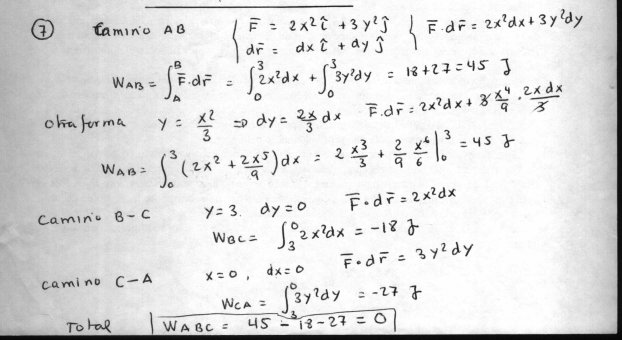 7 Camino AB { F̄ = 2x² î + 3y² ĵ } F̄·dr̄ = 2x²dx + 3y²dy
dr̄ = dx î + dy ĵ
W_AB = ∫_A^B F̄·dr̄ = ∫_0^3 2x²dx + ∫_0^3 3y²dy = 18+27 = 45 J
Otra forma y = x²/3 ⇒ dy = 2x/3 dx F̄·dr̄ = 2x²dx + 3 x⁴/9 · 2x dx/3
W_AB = ∫_0^3 (2x² + 2x⁵/9) dx = 2 x³/3 + 2/9 x⁶/6 |_0^3 = 45 J
Camino B-C y=3. dy=0 F̄·dr̄ = 2x²dx
W_BC = ∫_3^0 2x²dx = -18 J
Camino C-A x=0, dx=0 F̄·dr̄ = 3y²dy
W_CA = ∫_3^0 3y²dy = -27 J
Total W_ABC = 45 - 18 - 27 = 0